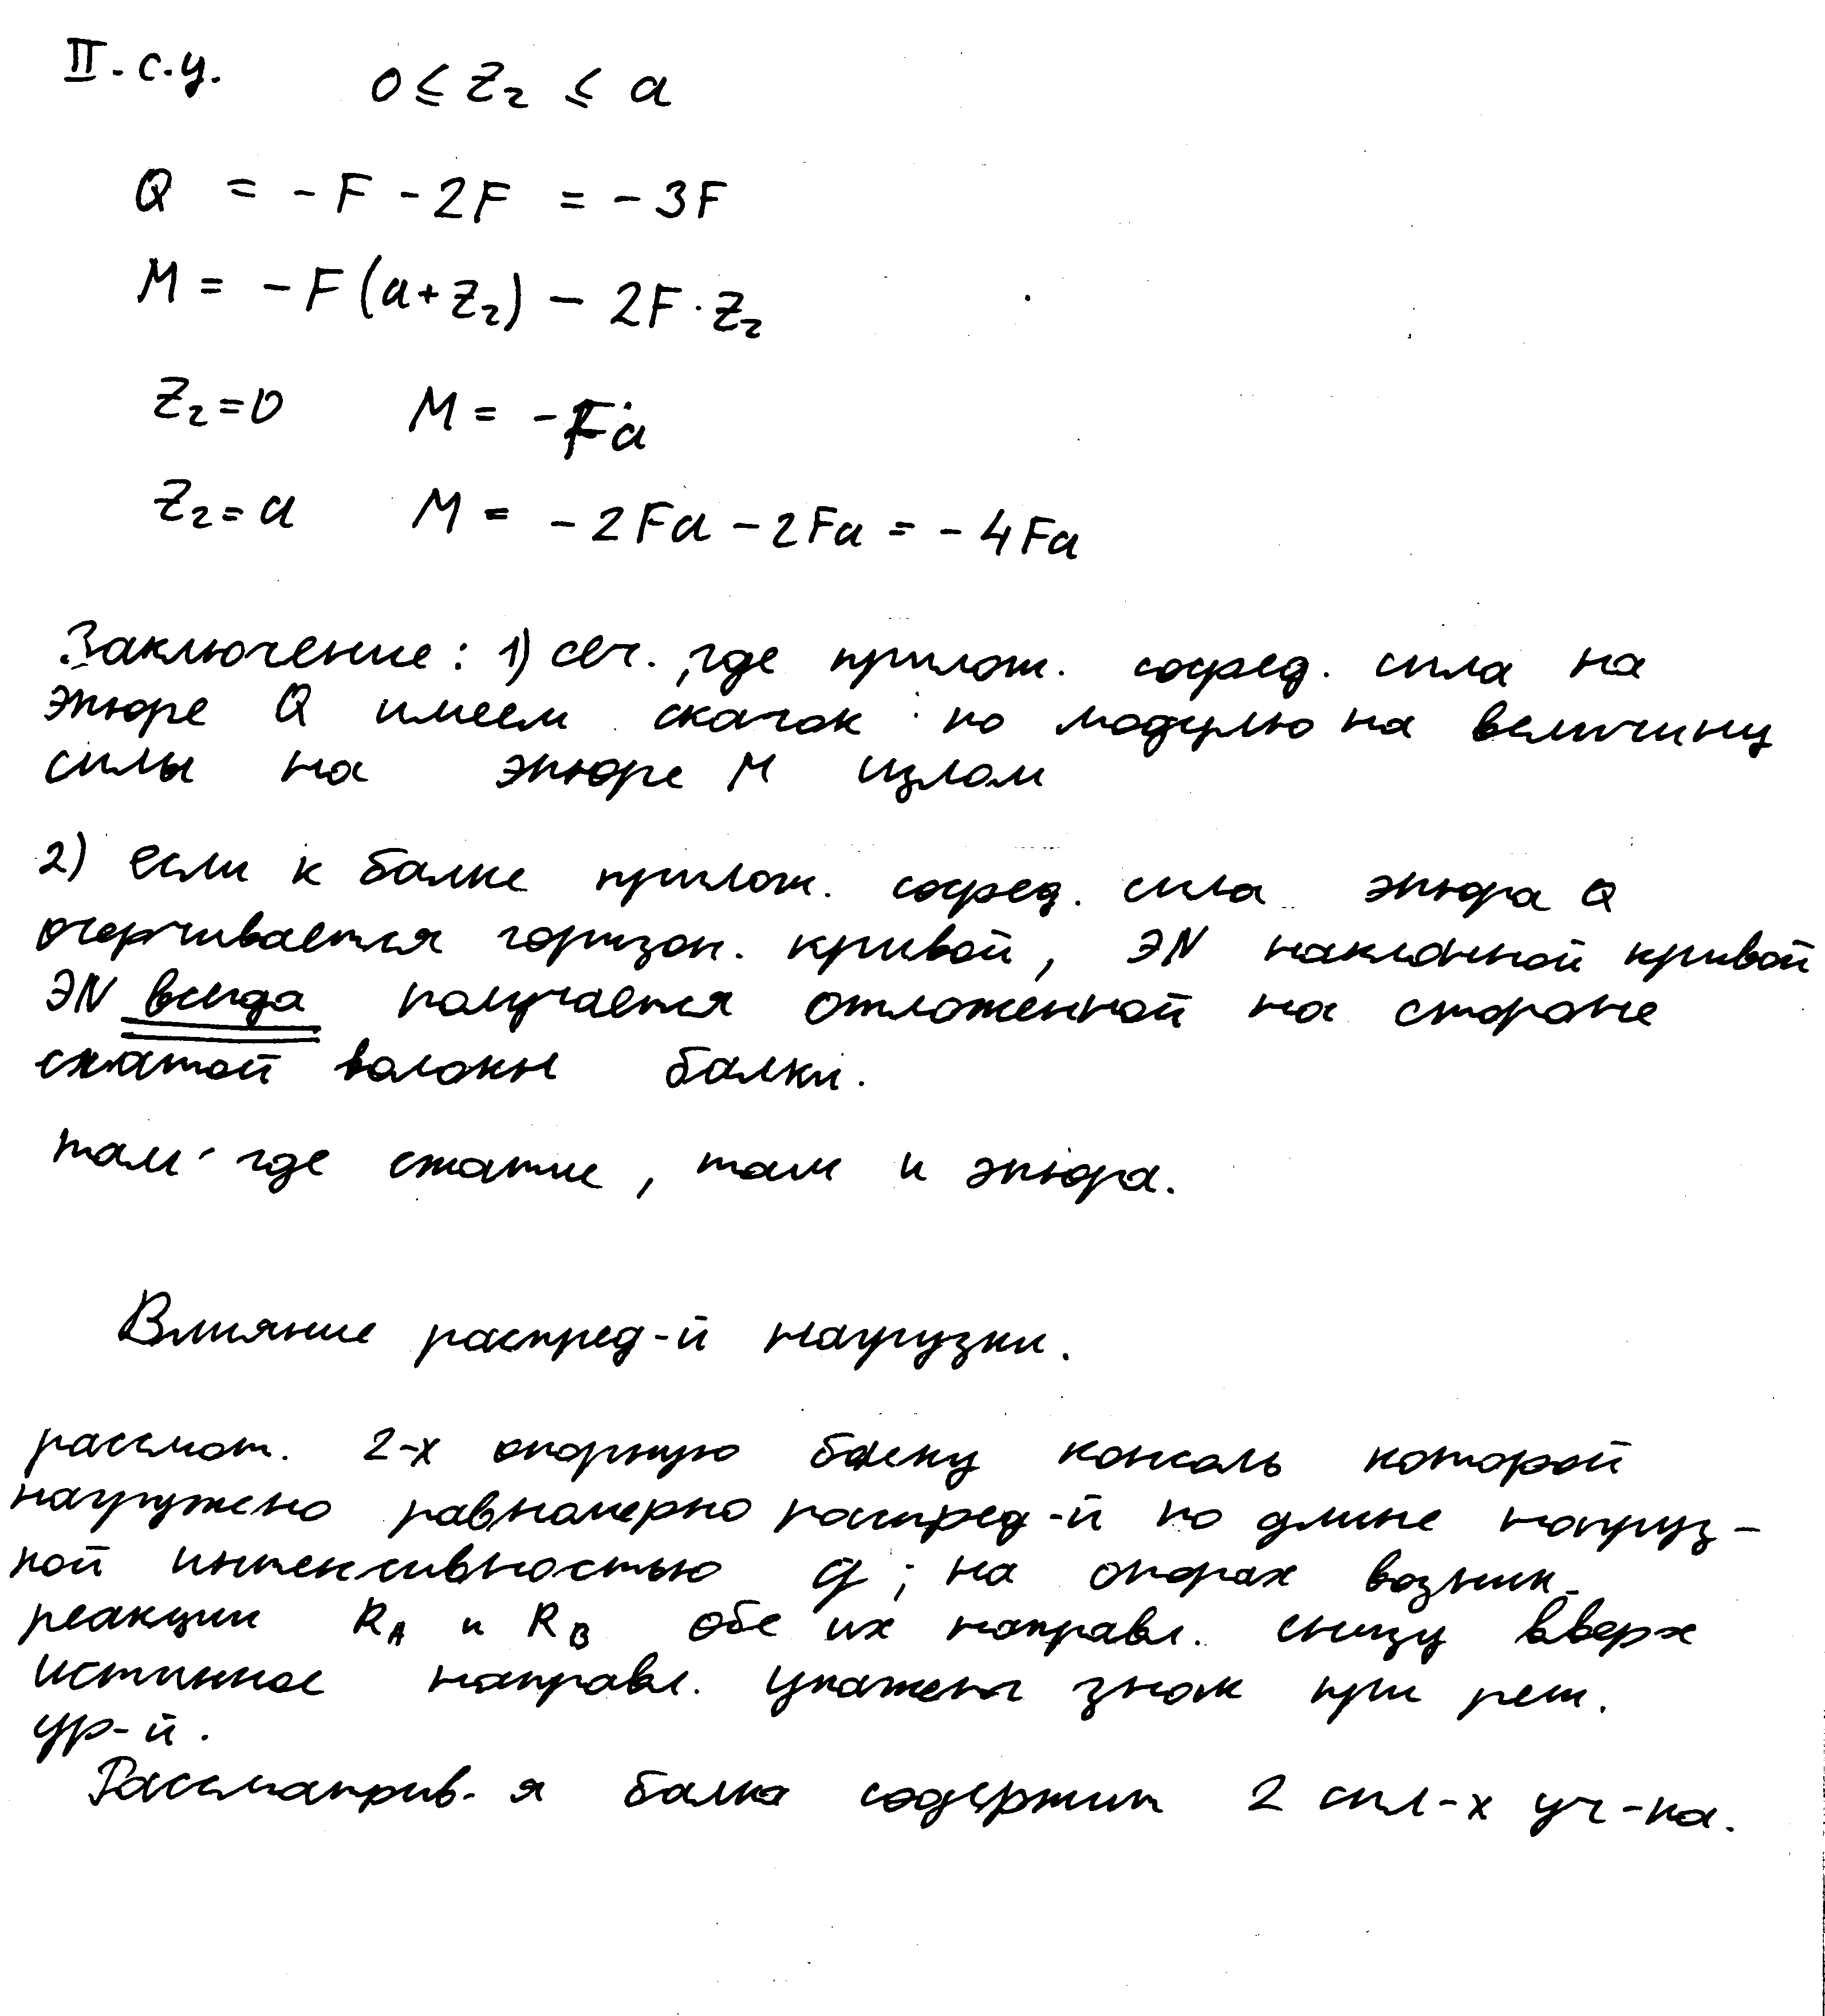 II. с.у. 0 ≤ z₂ ≤ a
Q = - F - 2F = - 3F
M = - F (a + z₂) - 2F · z₂
z₂ = 0 M = - Fa
z₂ = a M = - 2Fa - 2Fa = - 4Fa
Заключение: 1) сеч. , где прилож. сосред. сила на
эпюре Q имеем скачок по модулю на величину
силы на эпюре M излом
2) если к балке прилож. сосред. сила эпюра Q
очерчивается горизон. кривой, ЭN наклонной кривой
ЭN всегда получается отложенной на стороне
сжатой волокн балки.
там где сжатие, там и эпюра.
Влияние распред-й нагрузки.
рассмот. 2-х опорную балку консоль которой
нагружено равномерно распред-й по длине нагруз-
кой интенсивностью q; на опорах возник.
реакции R_A и R_B обе их направл. снизу вверх
истинное направл. укажет знак при реш.
ур-й.
Рассматрив-я балка содержит 2 сил-х уч-ка.